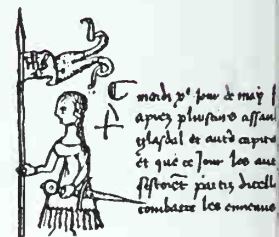 mardi xe jour de may
apres plusieurs assau
glasdal et autrs capit
et que ce Jour les aut
sestoiet partis dicell
combatre les ennemis